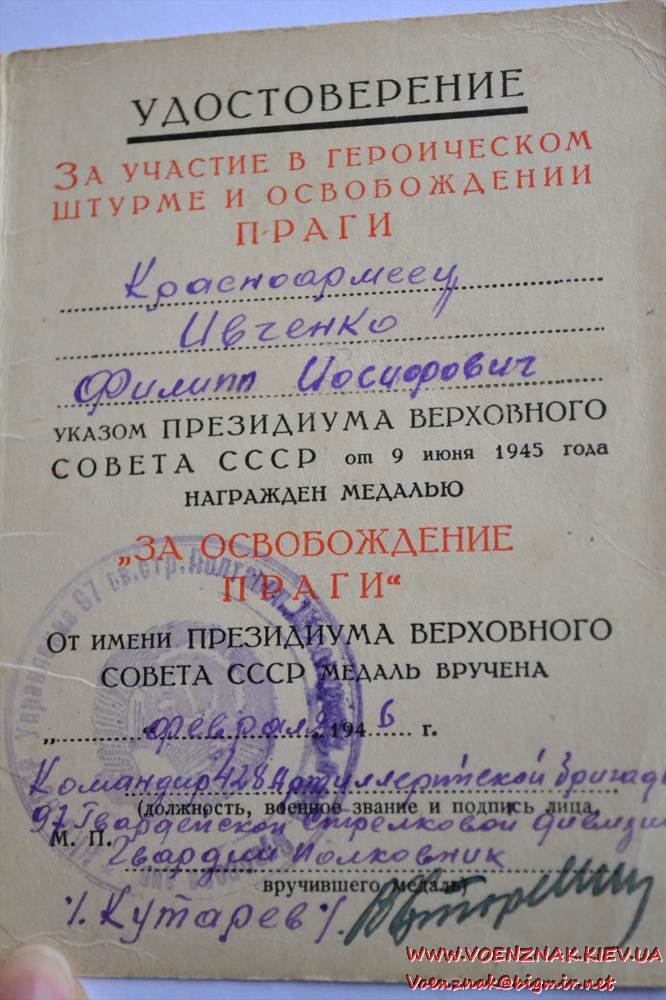 УДОСТОВЕРЕНИЕ
ЗА УЧАСТИЕ В ГЕРОИЧЕСКОМ
ШТУРМЕ И ОСВОБОЖДЕНИИ
ПРАГИ
Красноармеец
Ивченко
Филипп Иосифович
УКАЗОМ ПРЕЗИДИУМА ВЕРХОВНОГО
СОВЕТА СССР от 9 июня 1945 года
НАГРАЖДЕН МЕДАЛЬЮ
„ЗА ОСВОБОЖДЕНИЕ
ПРАГИ“
ОТ ИМЕНИ ПРЕЗИДИУМА ВЕРХОВНОГО
СОВЕТА СССР МЕДАЛЬ ВРУЧЕНА
„ “ февраля 1946 г.
Командир 428 Артиллерийской Бригады
(должность, военное звание и подпись лица,
97 Гвардейской Стрелковой Дивизии
М. П.
Гвардии Полковник
вручившего медаль)
/. Кутарев /.
97 гв. стр.
WWW.VOENZNAK.KIEV.UA
Voenznak@bigmir.net